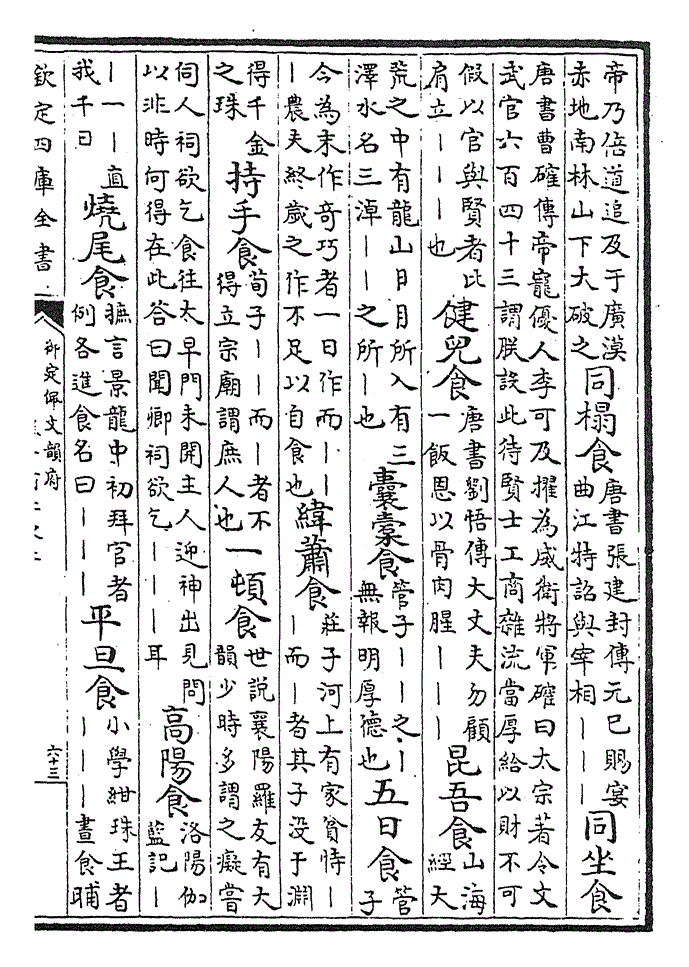 帝乃倍道追及于廣漠
赤地南林山下大破之
同榻食
唐書張建封傳元巳賜宴
曲江特詔與宰相丨丨丨
同坐食
唐書曹確傳帝寵優人李可及擢為威衛將軍確曰太宗著令文
武官六百四十三謂朕設此待賢士工商雜流當厚給以財不可
假以官與賢者比
肩立丨丨丨也
健兒食
唐書劉悟傳大丈夫勿顧
一飯恩以骨肉腥丨丨丨
昆吾食
山海
經大
荒之中有龍山日月所入有三
澤水名三淖丨丨之所丨也
囊橐食
管子丨丨之丨
無報明厚德也
五日食
管
子
今為末作奇巧者一日作而丨丨
丨農夫終歲之作不足以自食也
緯蕭食
莊子河上有家貧恃丨
丨而丨者其子没于淵
得千金
之珠
持手食
荀子丨丨而丨者不
得立宗廟謂庶人也
一頓食
世說襄陽羅友有大
韻少時多謂之癡嘗
伺人祠欲乞食往太早門未開主人迎神出見問
以非時何得在此答曰聞卿祠欲乞丨丨丨耳
高陽食
洛陽伽
藍記丨
丨一丨直
我千日
燒尾食
摭言景龍中初拜官者
例各進食名曰丨丨丨
平旦食
小學紺珠王者
丨丨丨晝食晡
欽定四庫全書
御定佩文韻府
六十三